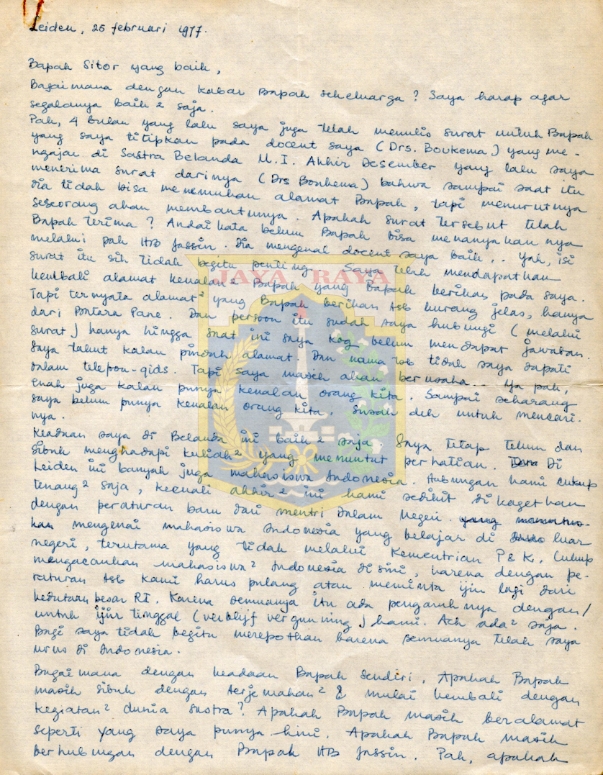 Leiden, 25 februari 1977.
Bapak Sitor yang baik,
Bagaimana dengan kabar Bapak sekeluarga? Saya harap agar
segalanya baik² saja.
Pak, 4 bulan yang lalu saya juga telah menulis surat untuk Bapak
yang saya titipkan pada docent saya (Drs. Boukema) yang me-
ngajar di Sastra Belanda U.I. Akhir Desember yang lalu saya
menerima surat darinya (Drs Boukema) bahwa sampai saat itu
dia tidak bisa menemukan alamat Bapak, tapi menurutnya
seseorang akan membantunya. Apakah surat tersebut telah
Bapak terima? Andai kata belum Bapak bisa menanyakannya
melalui pak HB Jassin. Dia mengenai docent saya baik. Yah, isi
surat itu sih tidak begitu penting. Saya telah mendapatkan
kembali alamat kenalan² Bapak yang Bapak berikan pada saya.
Tapi ternyata alamat² yang Bapak berikan tsb kurang jelas, hanya
dari Antara Pane. Dan person itu sudah saya hubungi (melalui
surat) hanya hingga saat ini saya kog belum mendapat jawaban.
Saya takut kalau pindah alamat. Dan nama tsb tidak saya dapati
dalam telepon-gids. Tapi saya masih akan berusaha... Ya pak,
enak juga kalau punya kenalan orang kita. Sampai sekarang
saya belum punya kenalan orang kita. Susah deh untuk mencari-
nya.
Keadaan saya di Belanda ini baik² saja. Saya tetap tekun dan
sibuk menghadapi kuliah² yang menuntut perhatian. Di
Leiden ini banyak juga mahasiswa Indonesia. Hubungan kami cukup
tenang² saja, kecuali akhir² ini kami sedikit di kagetkan
dengan peraturan baru dari mentri dalam negeri
mengenai mahasiswa Indonesia yang belajar di luar
negeri, terutama yang tidak melalui Kementrian P & K. Cukup
mengacaukan mahasiswa² Indonesia disini, karena dengan pe-
raturan tsb kami harus pulang atau meminta ijin lagi dari
kedutaan besar RI. Karena semuanya itu ada pengaruhnya dengan/
untuk ijin tinggal (verblijf vergunning) kami. Ach ada² saja.
Bagi saya tidak begitu merepotkan karena semuanya telah saya
urus di Indonesia.
Bagaimana dengan keadaan Bapak sendiri. Apakah Bapak
masih sibuk dengan terjemahan² & mulai kembali dengan
kegiatan² dunia sastra? Apakah Bapak masih beralamat
seperti yang saya punya kini. Apakah Bapak masih
berhubungan dengan Bapak HB Jassin. Pak, apakah
JAYA RAYA